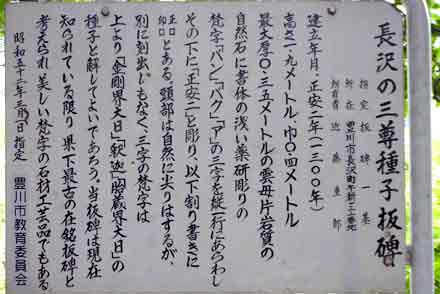 長沢の三尊種子板碑
指定 板碑 一基
所在 豊川市長沢町午新三二番地
所有者 近藤重郎
建立年月、正安二年(一三〇〇年)
高さ一・九メートル、巾〇・四メートル
最大厚〇・三五メートルの雲母片岩質の
自然石に書体の浅い薬研彫りの
梵字、「バン」「バク」「ア」の三字を縦一行にあらわし
その下に「正安二」と彫り、以下割り書きに
とある。頭部は自然に尖りはするが、
別に刻出しもなく、三字の梵字は
上より「金剛界大日」「釈迦」「胎蔵界大日」の
種子と解してよいであろう。当板碑は現在
知られている限り、県下最古の在銘板碑と
考えられ、美しい梵字の石材工芸品でもある
昭和五十二年三月一日指定 豊川市教育委員会